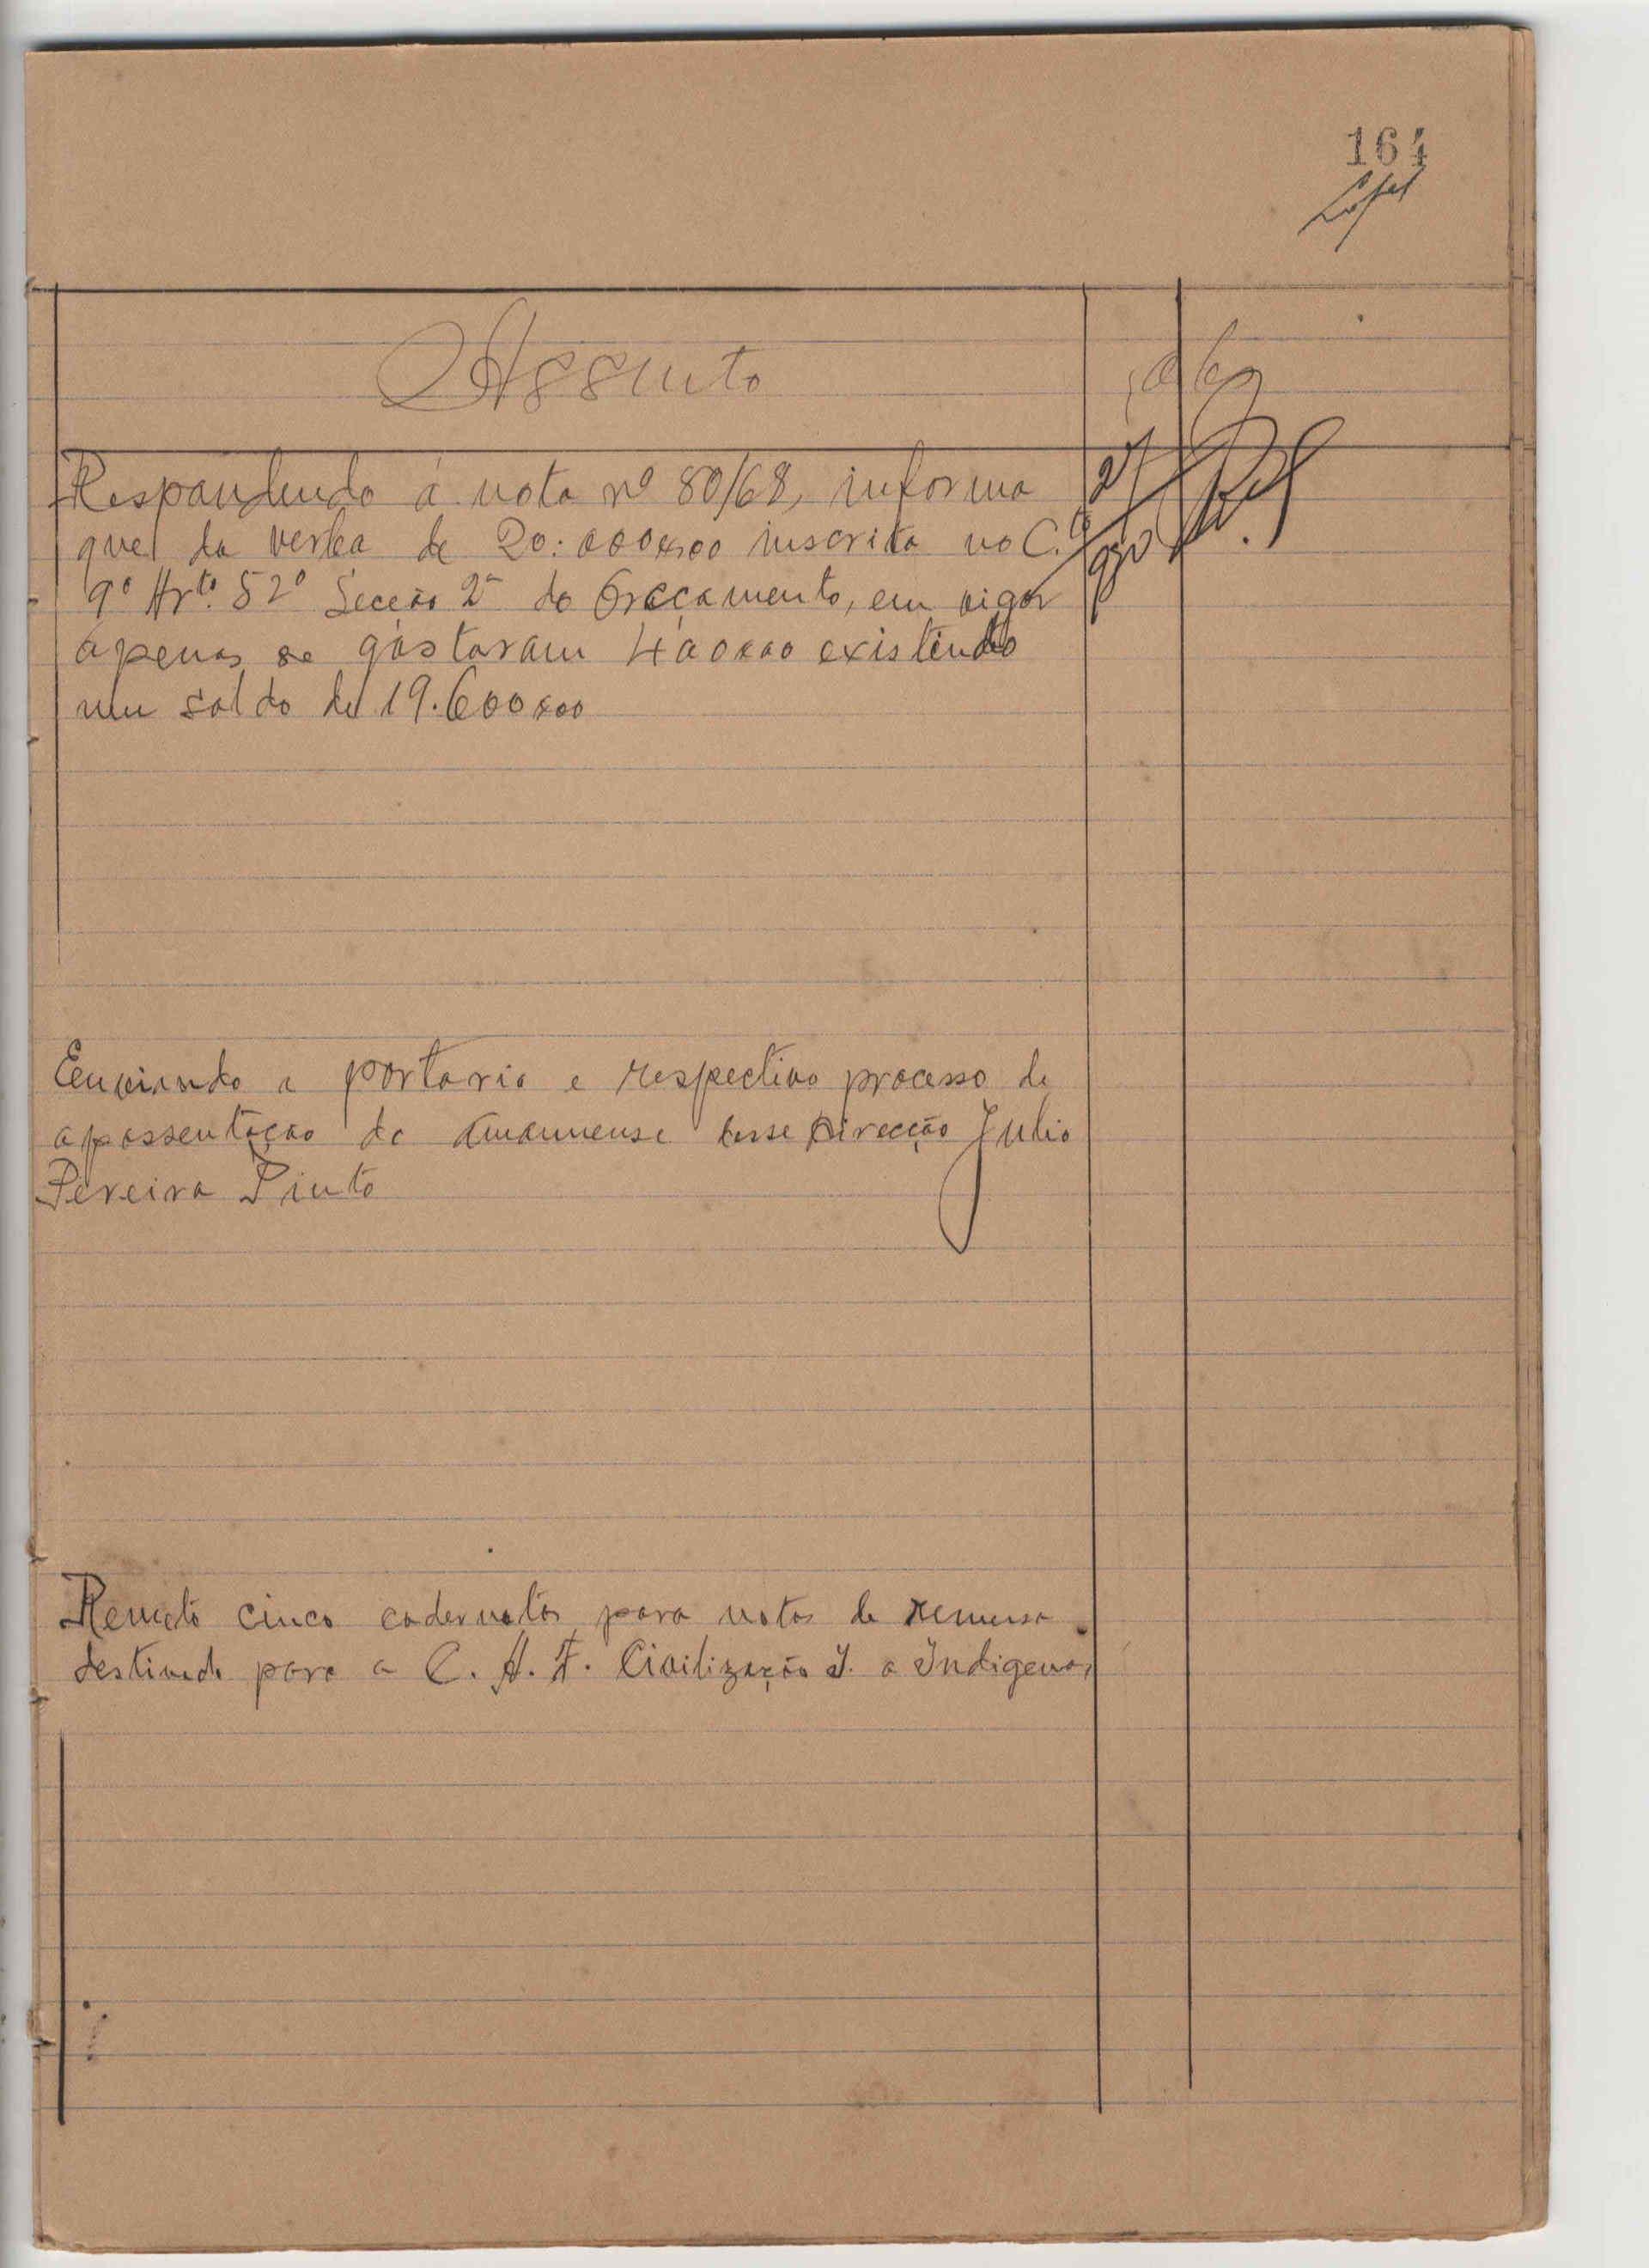 164
Assunto
Respondendo á nota nº 80/68, informa
que da verba de 20:000x00 inscrita no C.to
9º Art.º 52º Secção 2ª do Orcçamento, em vigor
apenas se gastaram 400x00 existindo
um saldo de 19.600x00
Enviando a portaria e respectivo processo de
apossentação do amanuense desse Direcção Julio
Pereira Pinto
Remeto cinco cadernetas para notas de remessa
destinado para a C. A. F. Civilização I. a Indigenas